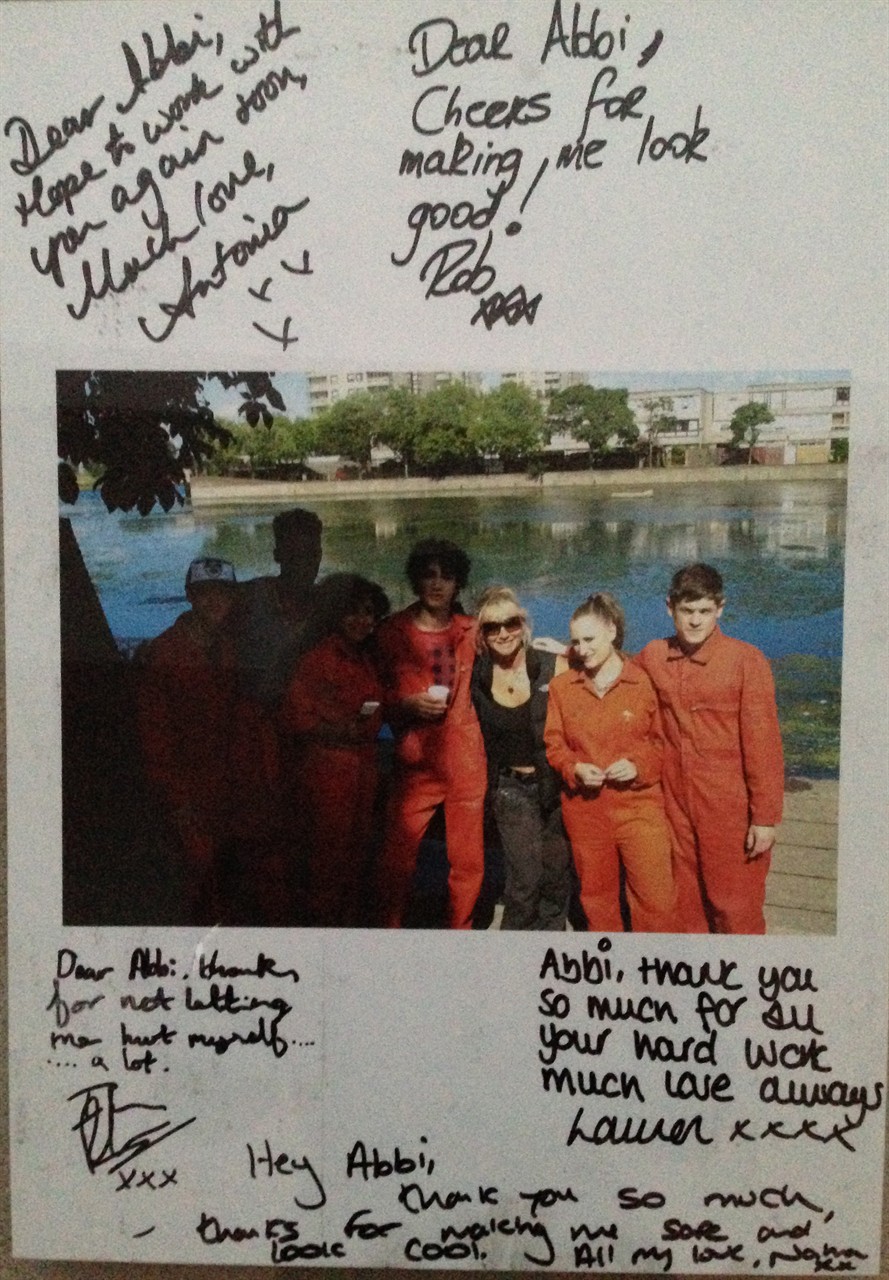 Dear Abbi,
Hope to work with
you again soon,
Much love,
Antonia
x x
x
Dear Abbi,
Cheers for
making me look
good!
Rob
xxx
Dear Abbi. thanks
for not letting
me hurt myself....
.... a lot.
xxx
Abbi, thank you
so much for all
your hard work
much love always
Lauren xxxx
Hey Abbi,
thank you so much,
- thanks for making me safe and
look cool. All my love,
xx